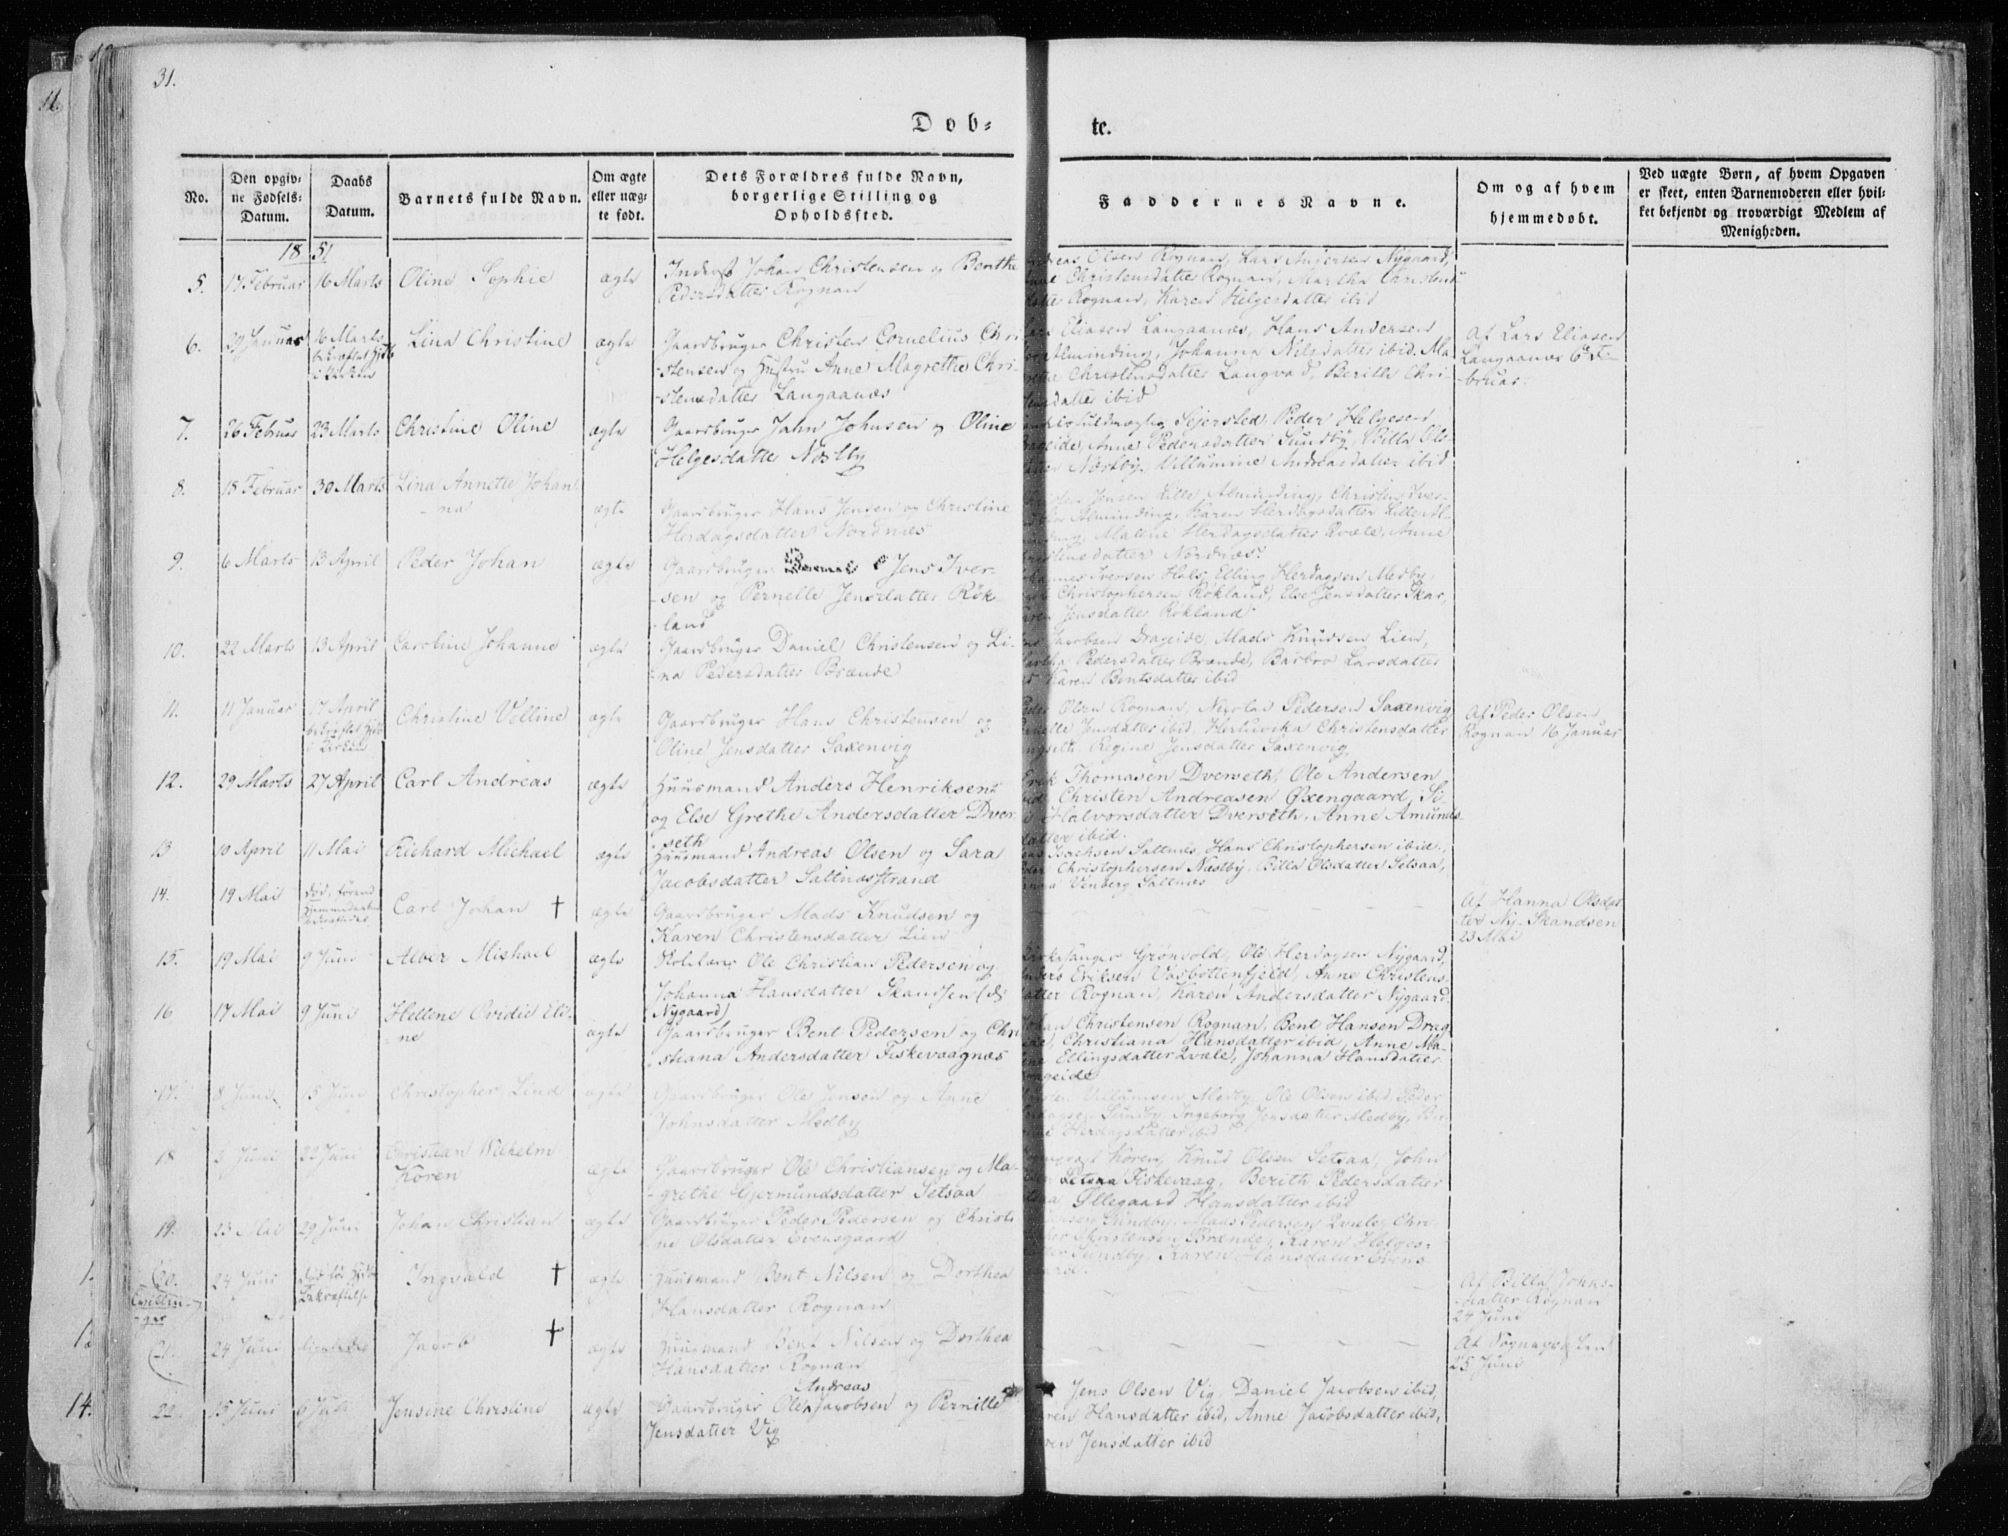 31.
Dob- te.
No.
Den opgiv-
ne Fødsels-
Datum.
Daabs
Datum.
Barnets fulde Navn.
Om ægte
eller uæg-
te født.
Dets Forældres fulde Navn,
borgerlige Stilling og
Opholdssted.
Faddernes Navne.
Om og af hvem
hjemmedøbt.
Ved uægte Børn, af hvem Opgaven
er skeet, enten Barnemoderen eller hvil-
ket bekjendt og troværdigt Medlem af
Menigheden.
1851
5. 17 Februar 16 Marts Oline Sophie ægte
Inderst Johan Christensen og Benthe
Pedersdatter Rognan
Olsen Rognan, Lars Andersen Nygaard,
Christensdatter Rognan, Martha Christens
Rognan, Karen Helgesdatter ibid
6. 29 Januar 16 Marts Lina Christine ægte
bekræftet Hjdb
i Kirken
Gaardbruger Christen Cornelius Chri
-stensen og Hustru Anne Magrethe Chri-
-stensdatter Langaanæs
Eliasen Langaanæs, Hans Andersen
Alminding, Johanna Nilsdatter ibid. Ma
Christensdatter Langvad, Berith Chri-
datter ibid
Af Lars Eliasen
Langaanæs 6 Fe-
bruar.
7. 26 Februar 23 Marts Christine Oline ægte
Gaardbruger Jahn Johnsen og Oline
Helgesdatter Næstby
Sejersted, Peder Helgesen
Anne Pedersdatter Sundby, Billa Ols-
Næstby, Villumine Andreasdatter ibid
8. 18 Februar 30 Marts Lina Annette Johan
-na ægte
Gaardbruger Hans Jensen og Christine
Herdagsdatter Nordnæs
Jensen Lille Alminding, Christen Iver-
Alminding, Karen Herdagsdatter Lille Al-
Malene Herdagsdatter Qvæle, Anne
datter Nordnæs.
9. 6 Marts 13 April Peder Johan ægte
Gaardbruger Jens Iver-
-sen og Pernelle Jensdatter Røk-
-land
Iversen Hals, Elling Herdagsen Medby,
Christophersen Røkland, Else Jensdatter Skar,
Jensdatter Røkland
10. 22 Marts 13 April Caroline Johanne ægte
Gaardbruger Daniel Christensen og Li-
-na Pedersdatter Brænde
Jacobsen Drageide, Mads Knudsen Lien,
Pedersdatter Brænde, Barbro Larsdatter
Karen Bentsdatter ibid
11. 11 Januar 17 April Christine Velline ægte
bekræftet Hjdb
i Kirken
Gaardbruger Hans Christensen og
Oline Jensdatter Saxenvig
Olsen Rognan, Nicolai Pedersen Saxenvig
Jensdatter ibid, Hertuvika Christensdatter
Regine Jensdatter Saxenvig
Af Peder Olsen
Rognan 16 Januar
12. 29 Marts 27 April Carl Andreas ægte
Huusmand Anders Henriksen
og Else Grethe Andersdatter Dver-
-seth
Thomasen Dverseth, Ole Andersen
Christen Andreasen Øxengaard, Si-
Halvorsdatter Dverseth, Anne Amunds
datter ibid.
13 10 April 11 Mai Richard Michael ægte
Huusmand Andreas Olsen og Sara
Jacobsdatter Saltnæsstrand
Isachsen Saltnæs, Hans Christophersen ibid.,
Christophersen Næstby, Billa Olsdatter Setsaa,
Venberg Saltnæs
14. 19 Mai død, førend Carl Johan † ægte
Gaardbruger Mads Knudsen og
Karen Christensdatter Lien
Af Hanna Olsdat
ter Ny-Skandsen
23 Mai
15. 19 Mai 9 Juni Albér Michael ægte
Ole Christian Pedersen og
Johanna Hansdatter Skandsen
Nygaard)
Kirkesanger Grønvold, Ole Herdagsen Nygaard,
Eriksen Vasbottenfjeld, Anne Christens-
datter Rognan, Karen Andersdatter Nygaard.
16 17 Mai 9 Juni Hellene Ovidie Eli-
ne ægte
Gaardbruger Bent Pedersen og Chri
-stiana Andersdatter Fiskevaagnæs
Christensen Rognan, Bent Hansen Drag
Christiana Hansdatter ibid, Anne Ma-
Ellingsdatter Qvæle, Johanna Hansdatter
17. 8 Juni 15 Juni Christopher Lind ægte
Gaardbruger Ole Jensen og Anne
Johnsdatter Medby
Villumsen Medby, Ole Olsen ibid, Peder
Sundby, Ingeborg Jensdatter Medby, Be
Herdagsdatter ibid
18 2 Juni 22 Juni Christian Wilhelm
Koren ægte
Gaardbruger Ole Christiansen og Ma-
-grethe Gjermundsdatter Setsaa
Koren, Knud Olsen Setsaa, John
Fiskevaag, Berith Pedersdatter
Ellegaard Hansdatter ibid
19. 23 Mai 29 Juni Johan Christian ægte
Gaardbruger Peder Pedersen og Christi
ne Olsdatter Evensgaard
Sundby, Mads Pedersen Qvæle, Chri-
Christensen Brænde, Karen Helges-
Sundby, Karen Hansdatter Evens
20. 24 Juni død før Hjdb Ingvald † ægte
Bekræftelse
Tvillin-
ger
Huusmand Bent Nilsen og Dorthea
Hansdatter Rognan
Af Billa Johns-
datter Rognan
24 Juni
21. 24 Juni ligeledes Jacob † ægte
Huusmand Bent Nilsen og Dorthea
Hansdatter Rognan
Af Sognepræsten
25 Juni
14.
22. 15 Juni 6 Juli Jensine Christine ægte
Andreas
Gaardbruger Ole Jacobsen og Pernille
Jensdatter Vig
Jens Olsen Vig, Daniel Jacobsen ibid,
Hansdatter ibid, Anne Jacobsdatter ibid,
Jensdatter ibid